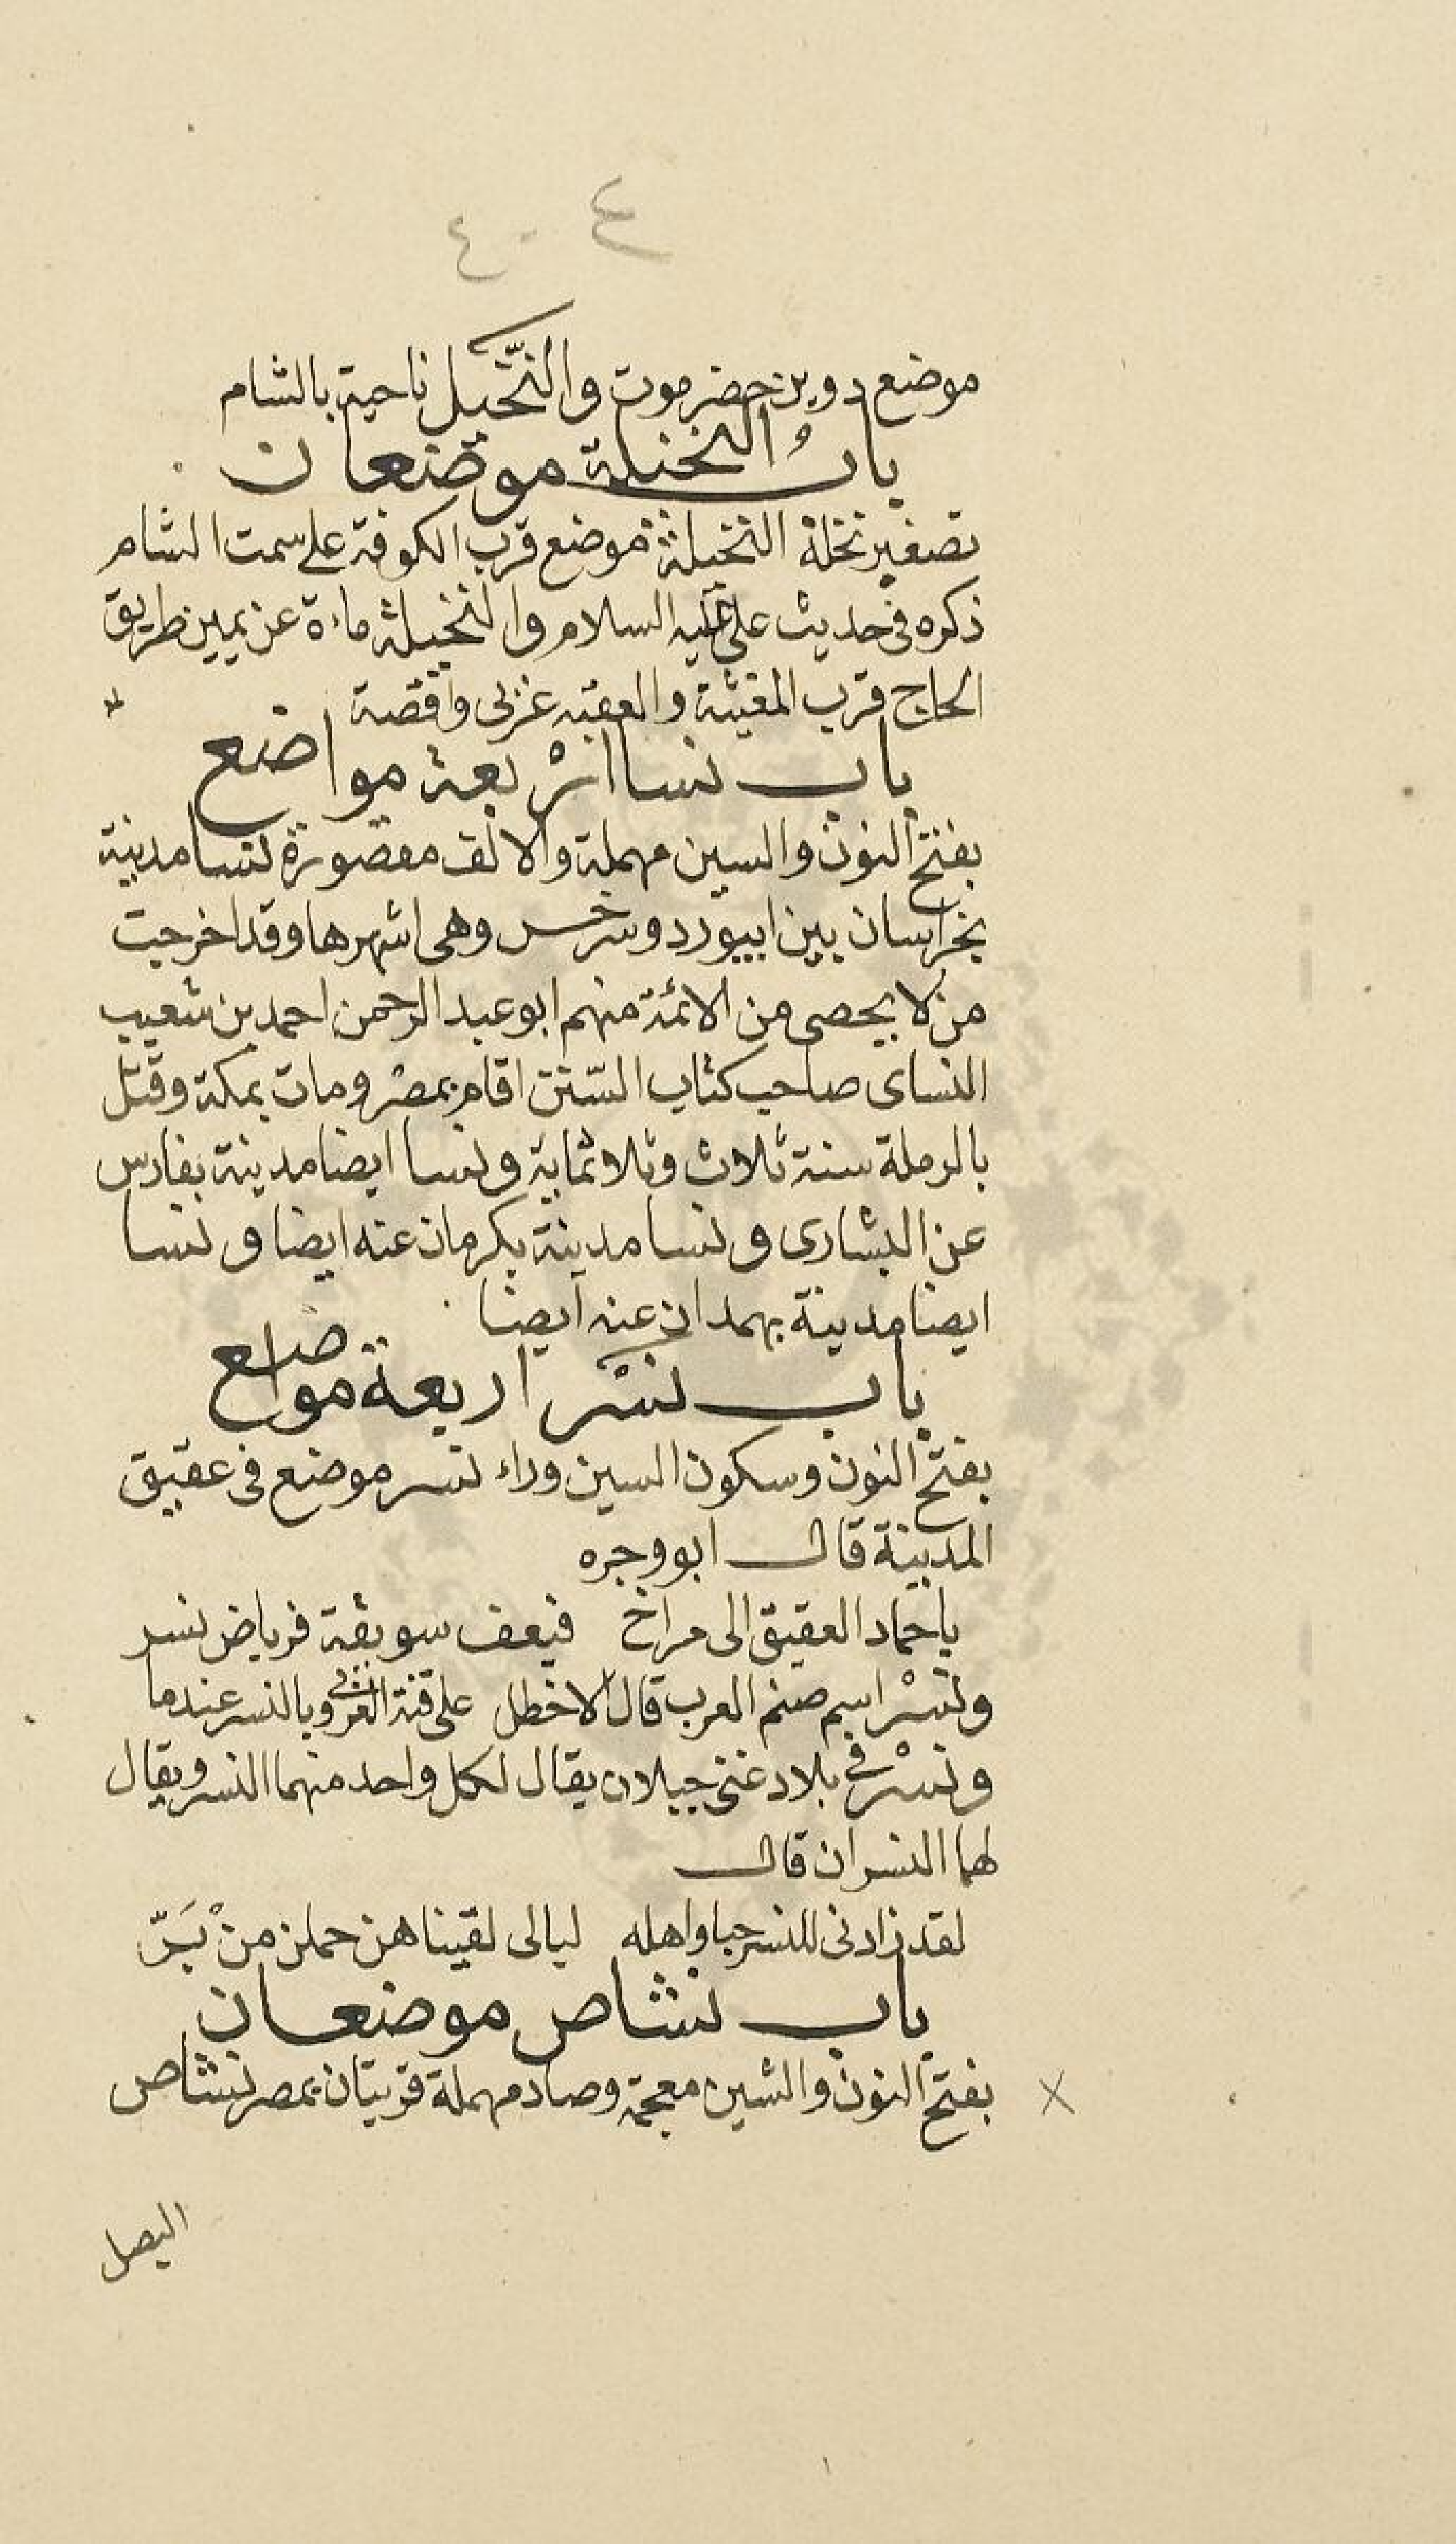 ٤٠٤
موضع دوين حضرموت والنخيل ناحية بالشام
باب النخيلة موضعان
تصغير نخلة النخيلة موضع قرب الكوفة على سمت الشام
ذكره فى حديث على عليه السلام والنخيلة ماءة عن يمين طريق
الحاج قرب المغيثة والعقبة غربى واقصة
باب نسا اربعة مواضع
بفتح النون والسين مهملة والالف مقصورة نسا مدينة
بخراسان بين ابيورد وسرخس وهى اشهرها وقد اخرجت
من لا يحصى من الائمة منهم ابو عبد الرحمن احمد بن شعيب
النساى صاحب كتاب السّنن اقام بمصر ومات بمكة وقتل
بالرملة سنة ثلاث وثلاثماية ونسا ايضا مدينة بفارس
عن البشارى ونسا مدينة بكرمان عنه ايضا ونسا
ايضا مدينة بهمدان عنه ايضا
باب نسر اربعة مواضع
بفتح النون وسكون السين وراء نسر موضع فى عقيق
المدينة قال ابو وجره
باجماد العقيق الى مراخ فنعف سويقة فرياض نسر
ونسْر اسم صنم العرب قال الاخطل على قنة العزى وبالنسر عندما
ونسْر فى بلاد غنى جبلان يقال لكل واحد منهما النسر ويقال
لهما النسران قال
لقد زادنى للنسر حبا واهله ليالى لقيناهن حملن من بَسّ
باب نشاص موضعان
بفتح النون والشين معجمة وصاد مهملة قريتان بمصر نشاص
البصل